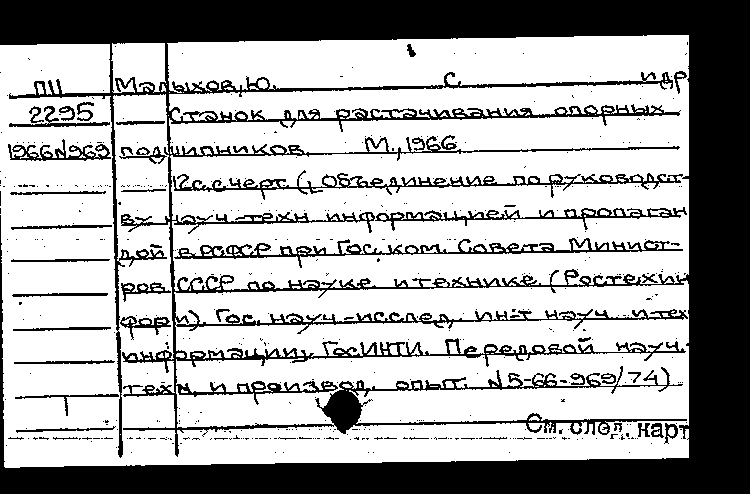 ПII Малыхов, Ю. С. и др
2295 Станок для растачивания опорных
1966N969 подшипников. М., 1966.
12с.с черт. (Объединение по руководст-
ву науч-техн. информацией и пропаган
дой в РСФСР при Гос. ком. Совета Минист-
ров СССР по науке и технике. (Ростехин
форм). Гос. науч-исслед. ин-т науч и тех
информации. ГосИНТИ. Передовой науч.
техн. и производ. опыт. N5-66-969/74)
См. след. карт